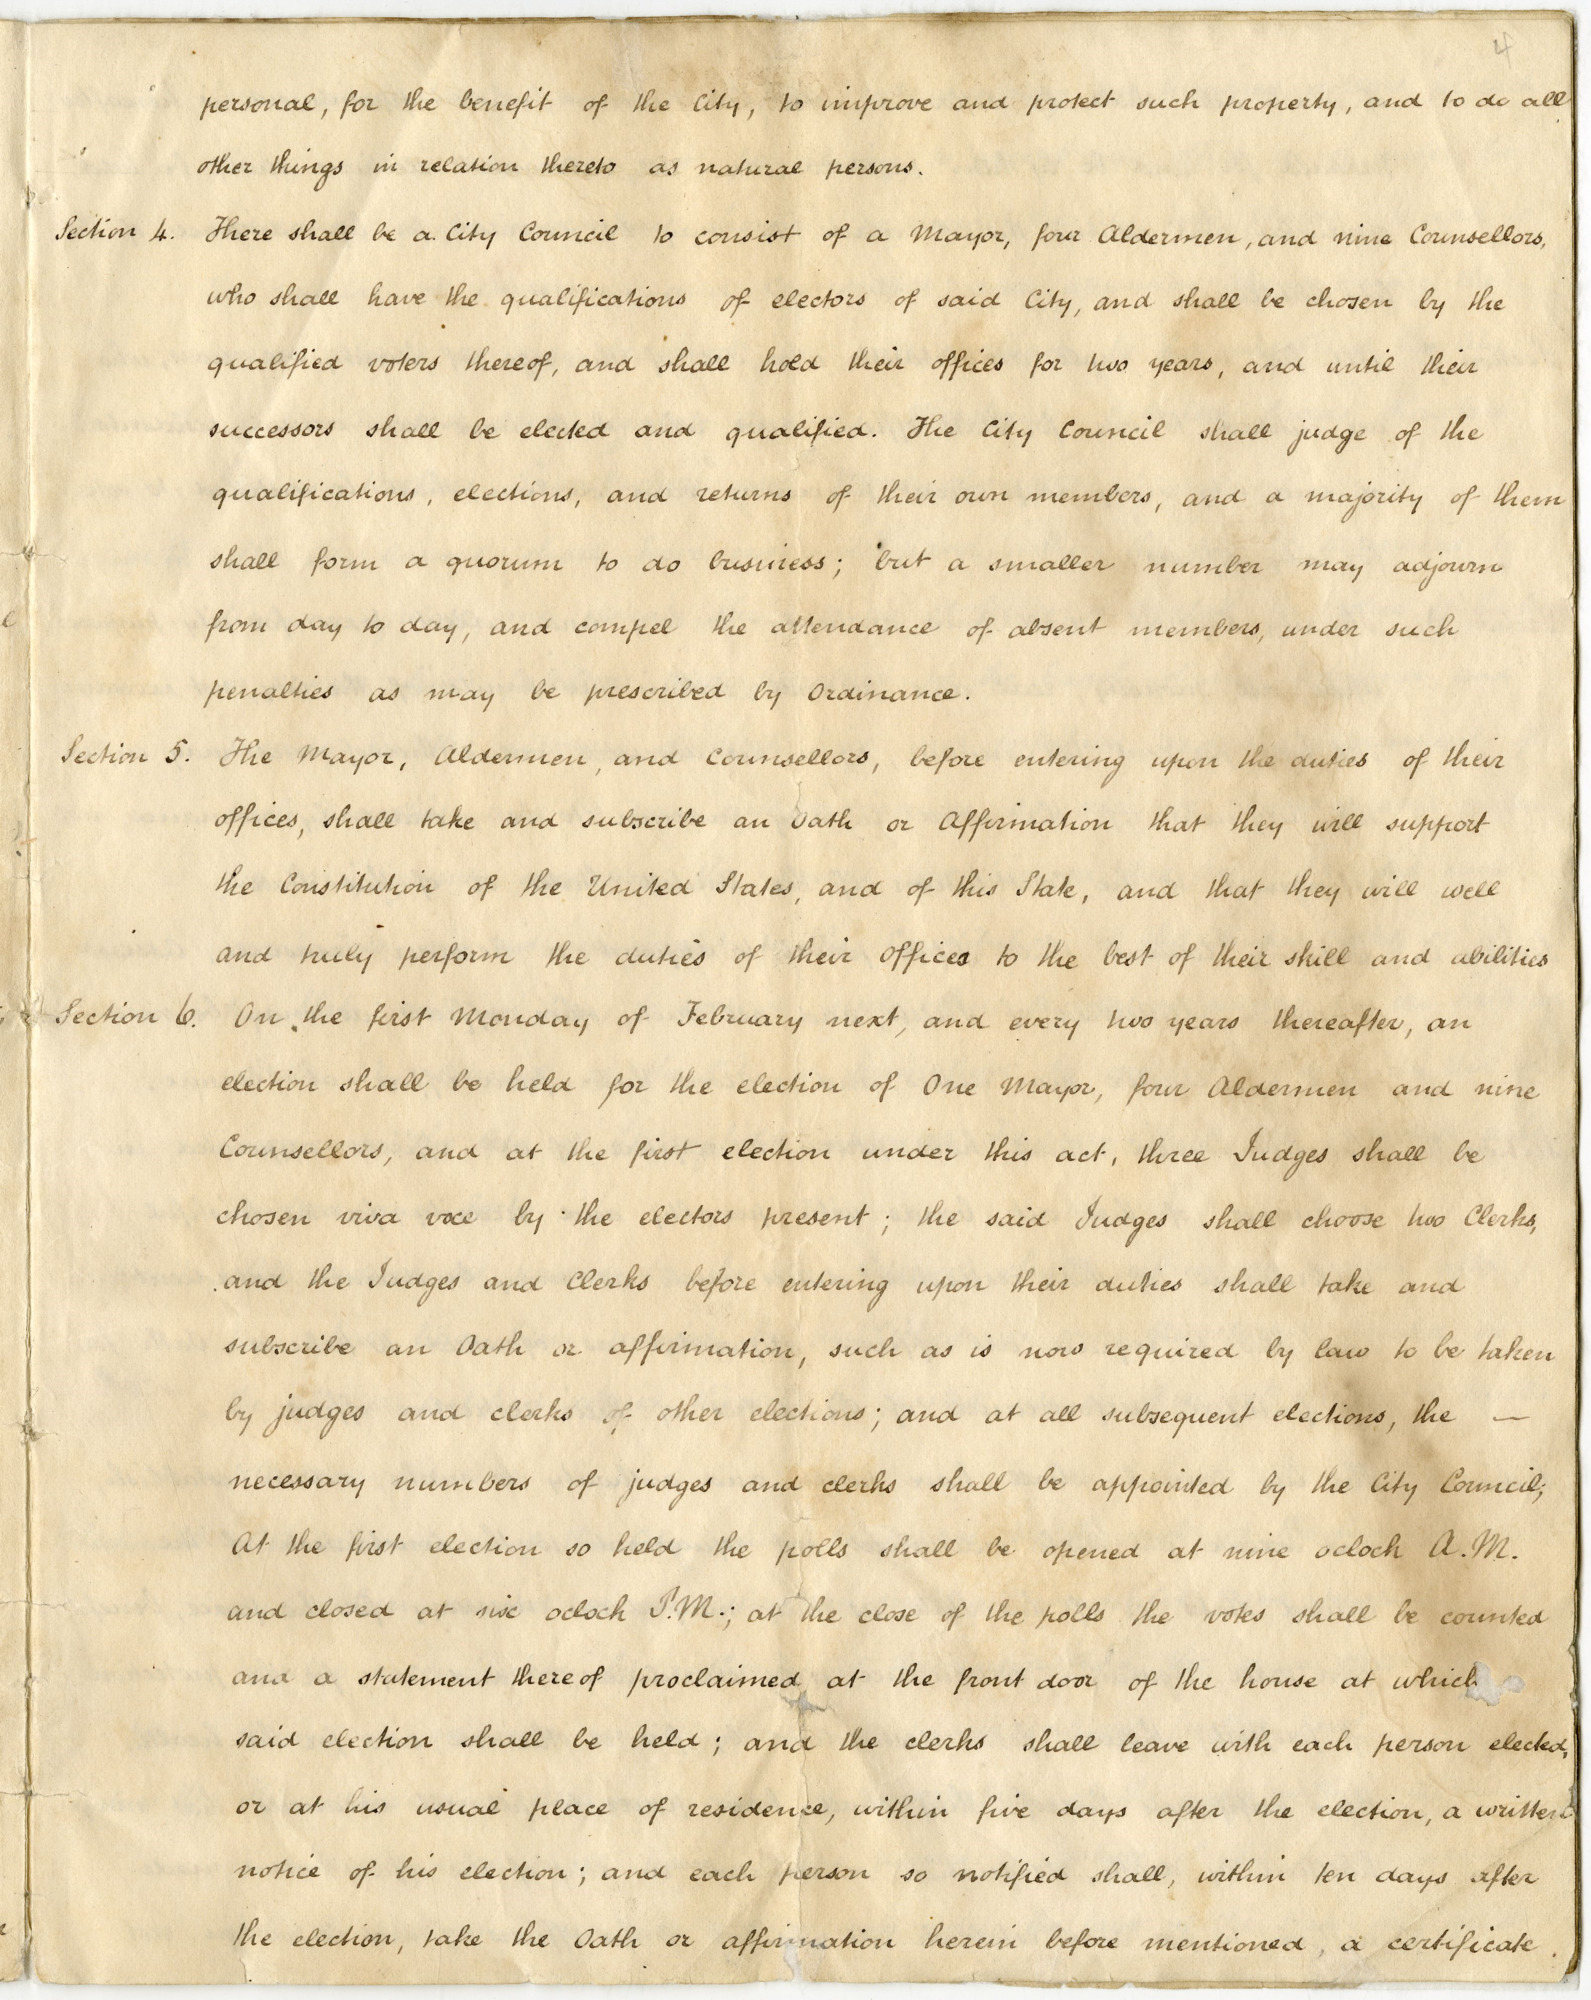 4
personal, for the benefit of the City, to improve and protect such property, and to do all
other things in relation thereto as natural persons.
Section 4. There shall be a City Council to consist of a Mayor, four Aldermen, and nine Counsellors,
who shall have the qualifications of electors of said City, and shall be chosen by the
qualified voters thereof, and shall hold their offices for two years, and until their
successors shall be elected and qualified. The City Council shall judge of the
qualifications, elections, and returns of their own members, and a majority of them
shall form a quorum to do business; but a smaller number may adjourn
from day to day, and compel the attendance of absent members, under such
penalties as may be prescribed by Ordinance.
Section 5. The Mayor, Aldermen, and Counsellors, before entering upon the duties of their
offices, shall take and subscribe an Oath or Affirmation that they will support
the Constitution of the United States, and of this State, and that they will well
and truly perform the duties of their offices to the best of their skill and abilities
Section 6. On the first Monday of February next, and every two years thereafter, an
election shall be held for the election of One Mayor, four Aldermen and nine
Counsellors, and at the first election under this act, three Judges shall be
chosen viva voce by the electors present; the said Judges shall choose two Clerks,
and the Judges and Clerks before entering upon their duties shall take and
subscribe an Oath or affirmation, such as is now required by law to be taken
by judges and clerks of other elections; and at all subsequent elections, the —
necessary numbers of judges and clerks shall be appointed by the City Council;
At the first election so held the polls shall be opened at nine oclock A.M.
and closed at six oclock P.M.; at the close of the polls the votes shall be counted
and a statement thereof proclaimed at the front door of the house at which
said election shall be held; and the clerks shall leave with each person elected,
or at his usual place of residence, within five days after the election, a written
notice of his election; and each person so notified shall, within ten days after
the election, take the Oath or affirmation herein before mentioned, a certificate